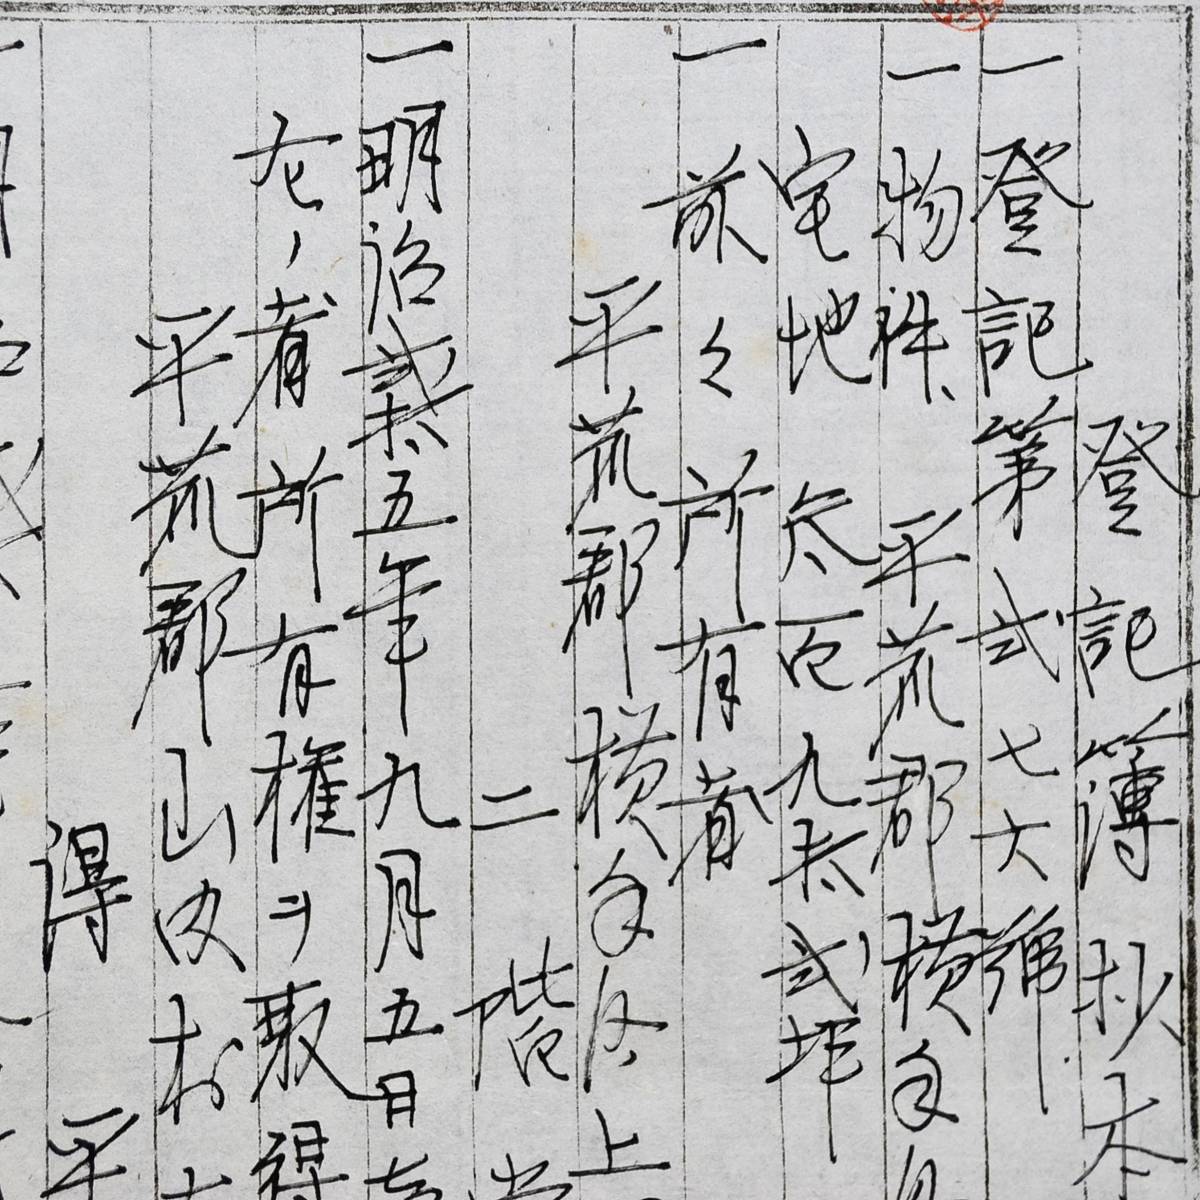 登記簿抄本
一登記第弐七六號
一物件 平荒郡横
宅地 参百九拾弐坪
一前々所有者
平荒郡横 上
二階堂
一明治貳拾五年九月五日
左ノ者所有権ヲ取得
平荒郡山内村
得 平